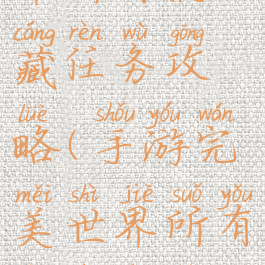 cáng rèn wù gōng
藏任务攻
lüè shǒu yóu wán
略(手游完
měi shì jiè suǒ yǒu
美世界所有